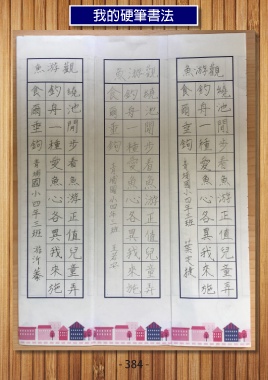 我的硬筆書法
觀游魚
繞池閒步看魚游正值兒童弄
釣舟一種愛魚心各異我來施
食爾垂鉤
青埔國小四年三班
觀游魚
繞池閒步看魚游正值兒童弄
釣舟一種愛魚心各異我來施
食爾垂鉤
青埔國小四年三班
觀游魚
繞池閒步看魚游正值兒童弄
釣舟一種愛魚心各異我來施
食爾垂鉤
青埔國小四年三班
- 384 -